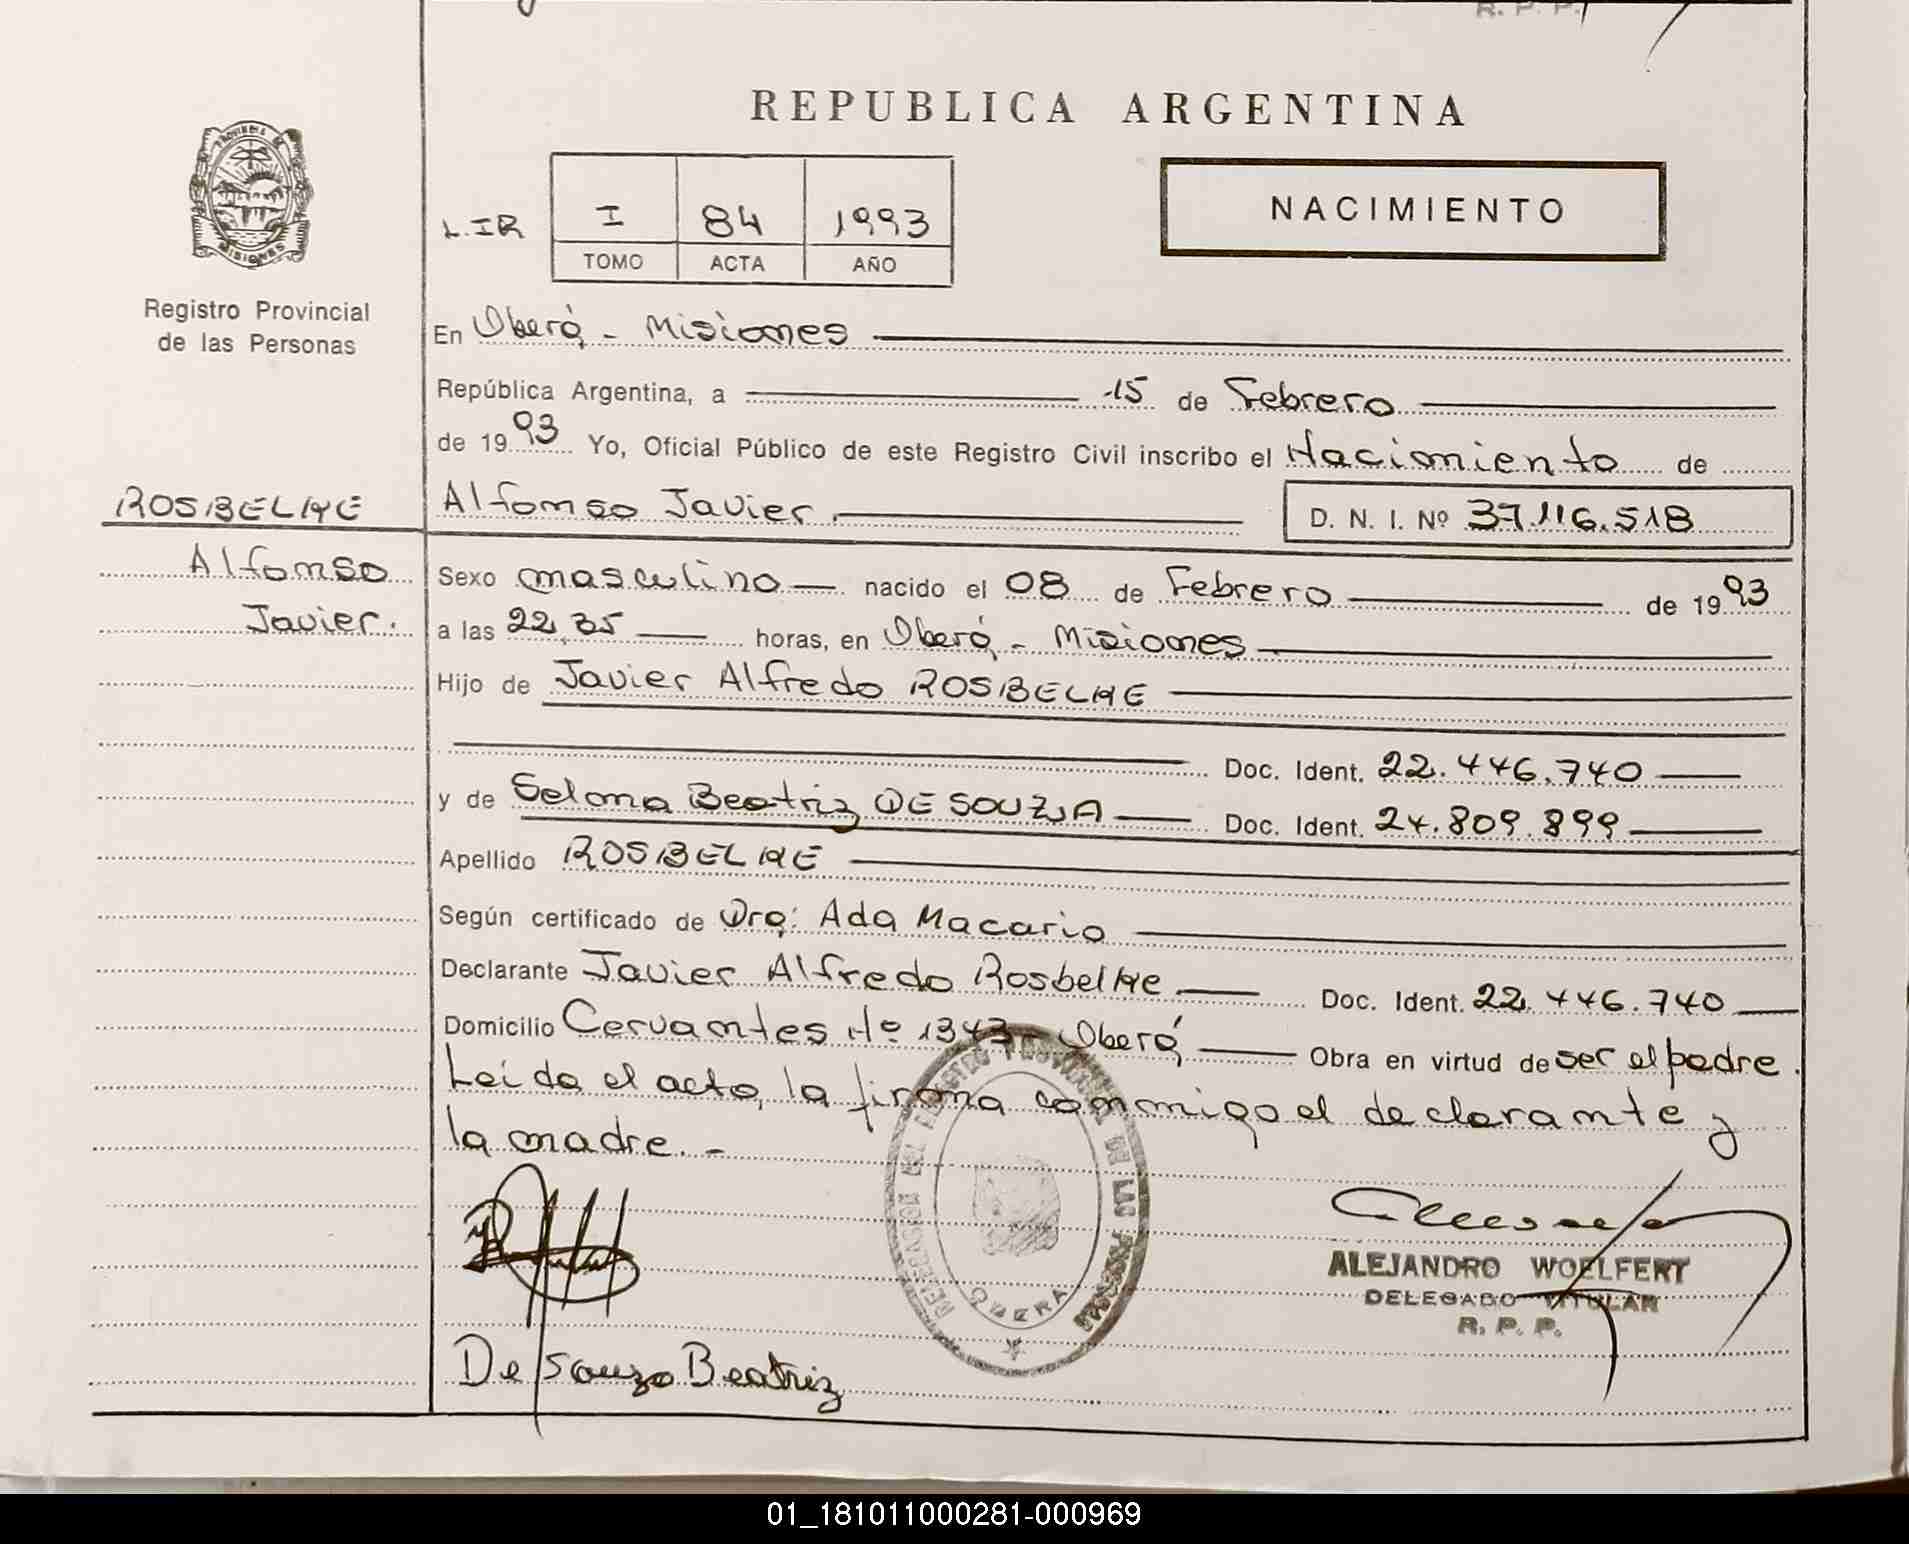 R. P. P.
REPUBLICA ARGENTINA
PROVINCIA DE
MISIONES
Registro Provincial
de las Personas
L.IR
I 84 1993
TOMO ACTA AÑO
NACIMIENTO
En Oberá - Misiones
República Argentina, a 15 de Febrero
de 1993 Yo, Oficial Público de este Registro Civil inscribo el Nacimiento de
ROSBELKE
Alfonso
Javier.
Alfonso Javier. D. N. I. Nº 37.116.518
Sexo masculino nacido el 08 de Febrero de 1993
a las 22,35 horas, en Oberá - Misiones
Hijo de Javier Alfredo ROSBELKE
Doc. Ident. 22.446.740
y de Selona Beatriz DE SOUZA Doc. Ident. 24.809.899
Apellido ROSBELKE
Según certificado de Dra: Ada Macario
Declarante Javier Alfredo Rosbelke Doc. Ident. 22.446.740
Domicilio Cervantes Nº 1343 - Oberá Obra en virtud de ser el padre.
Leída el acta, la firma conmigo el declarante y
la madre. -
REGISTRO PROVINCIAL DE LAS PERSONAS
OBERA
ALEJANDRO WOELFERT
DELEGADO TITULAR
R. P. P.
De Souza Beatriz
01_181011000281-000969